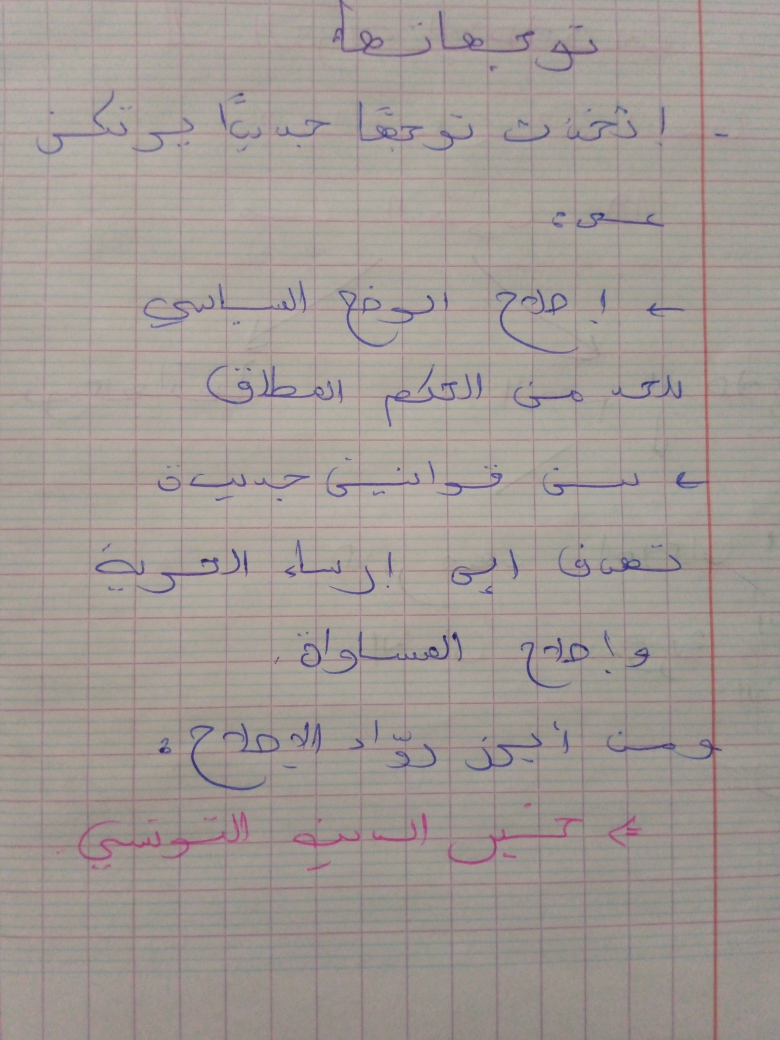 توجهاتها
- اتخذت توجهًا جديدًا يرتكز
على:
← إصلاح الوضع السياسي
للحد من الحكم المطلق
← سن قوانين جديدة
تهدف إلى إرساء الحرية
وإصلاح المساواة.
ومن أبرز روّاد الإصلاح:
⇐ خير الدين التونسي